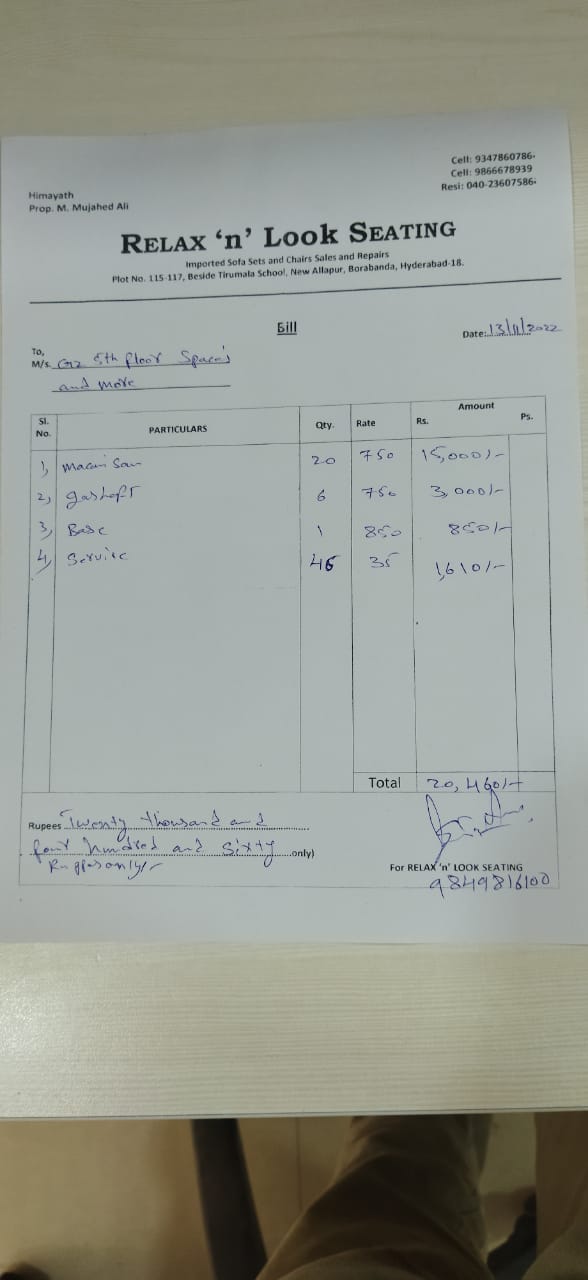 Himayath
Prop. M. Mujahed Ali
Cell: 9347860786
Cell: 9866678939
Resi: 040-23607586
RELAX ‘n’ Look SEATING
Imported Sofa Sets and Chairs Sales and Repairs
Plot No. 115-117, Beside Tirumala School, New Allapur, Borabanda, Hyderabad-18.
Bill
Date: 13/11/2022
To,
M/s. 5th floor Spaces
and more
Sl. No. PARTICULARS Qty. Rate Amount Rs. Ps.
1, 20 750 15,000/-
2, 6 750 3,000/-
3, Base 1 850 850/-
4, Service 46 35 1,610/-
Total 20,460/-
Rupees Twenty thousand and
four hundred and sixty only)
only/-
For RELAX 'n' LOOK SEATING
9849816100